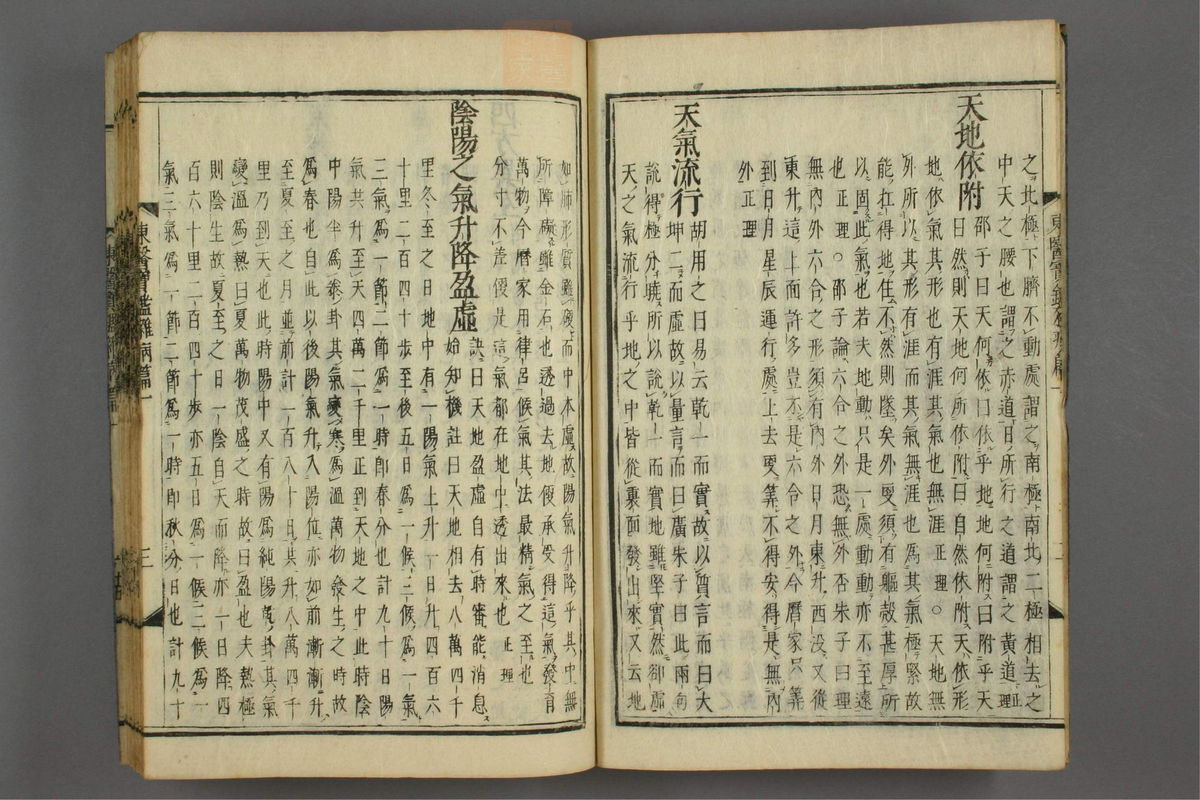 之北極下臍不動處謂之南極南北二極相去之
中天之腰也謂之赤道日所行之道謂之黃道正理
天地依附
邵子曰天何依曰依乎地地何附曰附乎天
曰然則天地何所依附曰自然依附天依形
地依氣其形也有涯其氣也無涯正理○天地無
外所以其形有涯而其氣無涯也爲其氣極緊故
能扛得地住不然則墜矣外更須有軀殼甚厚所
以固此氣也若夫地動只是一處動動亦不至遠
也正理○邵子論六合之外恐無外否朱子曰理
無內外六合之形須有內外日月東升西沒又從
東升這上面許多豈不是六合之外今曆家只筭
到日月星辰運行處上去更筭不得安得是無內
外正理
天氣流行
胡用之曰易云乾一而實故以質言而曰大
坤二而虛故以量言而曰廣朱子曰此兩句
說得極分曉所以說乾一而實地雖堅實然卻虛
天之氣流行乎地之中皆從裏面發出來又云地
東醫寶鑑雜病篇一
如肺形質雖硬而中本虛故陽氣升降乎其中無
所障礙雖金石也透過去地便承受得這氣發育
萬物今曆家用律呂候氣其法最精氣之至也
分寸不差便是這氣都在地中透出來也正理
陰陽之氣升降盈虛
訣曰天地盈虛自有時審能消息
始知機註曰天地相去八萬四千
里冬至之日地中有一陽氣上升一日升四百六
十里二百四十步至後五日爲一候三候爲一氣
二氣爲一節二節爲一時卽春分也計九十日陽
氣共升至天四萬二千里正到天地之中此時陰
中陽半爲泰卦其氣變寒爲溫萬物發生之時故
爲春也自此以後陽氣升入陽位亦如前漸漸升
至夏至之日並前計一百八十日共升八萬四千
里乃到天也此時陽中又有陽爲純陽乾卦其氣
變溫爲熱曰夏萬物茂盛之時故曰盈也夫熱極
則陰生故夏至之日一陰自天而降亦一日降四
百六十里二百四十步亦五日爲一候三候爲一
氣二氣爲一節二節爲一時卽秋分日也計九十
東醫寶鑑雜病篇一
三